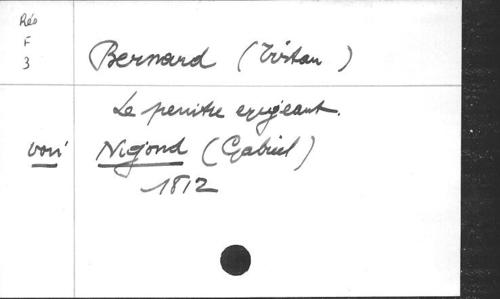 Rés
F
3
Bernard (Tristan)
Le peintre exigeant.
voir Nigond (Gabriel)
1812